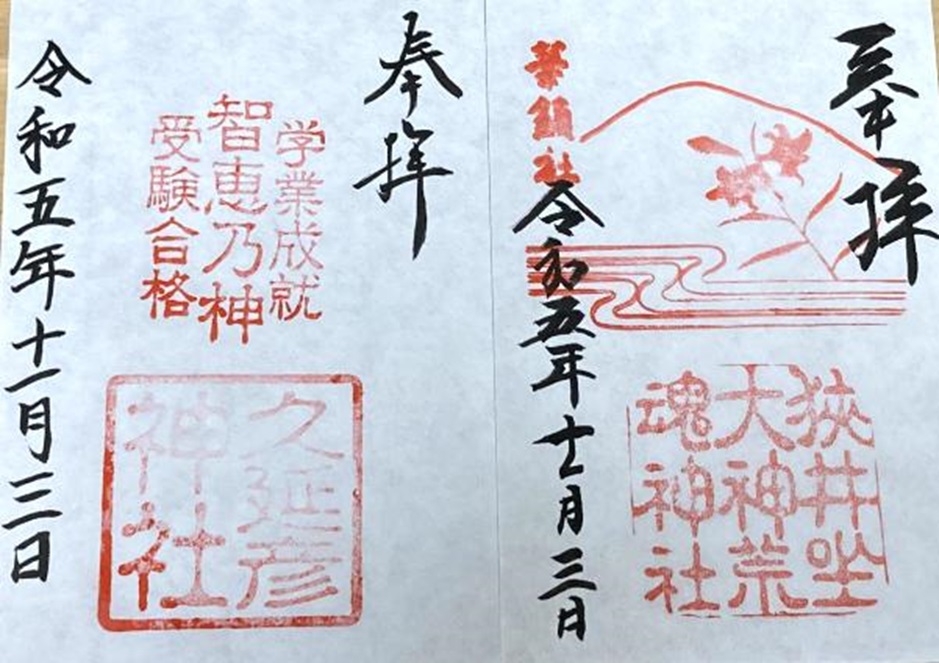 奉拝
華鎮社
狭井坐
大神荒
魂神社
令和五年十一月三日
奉拝
学業成就
智恵乃神
受験合格
久延彦
神社
令和五年十一月三日